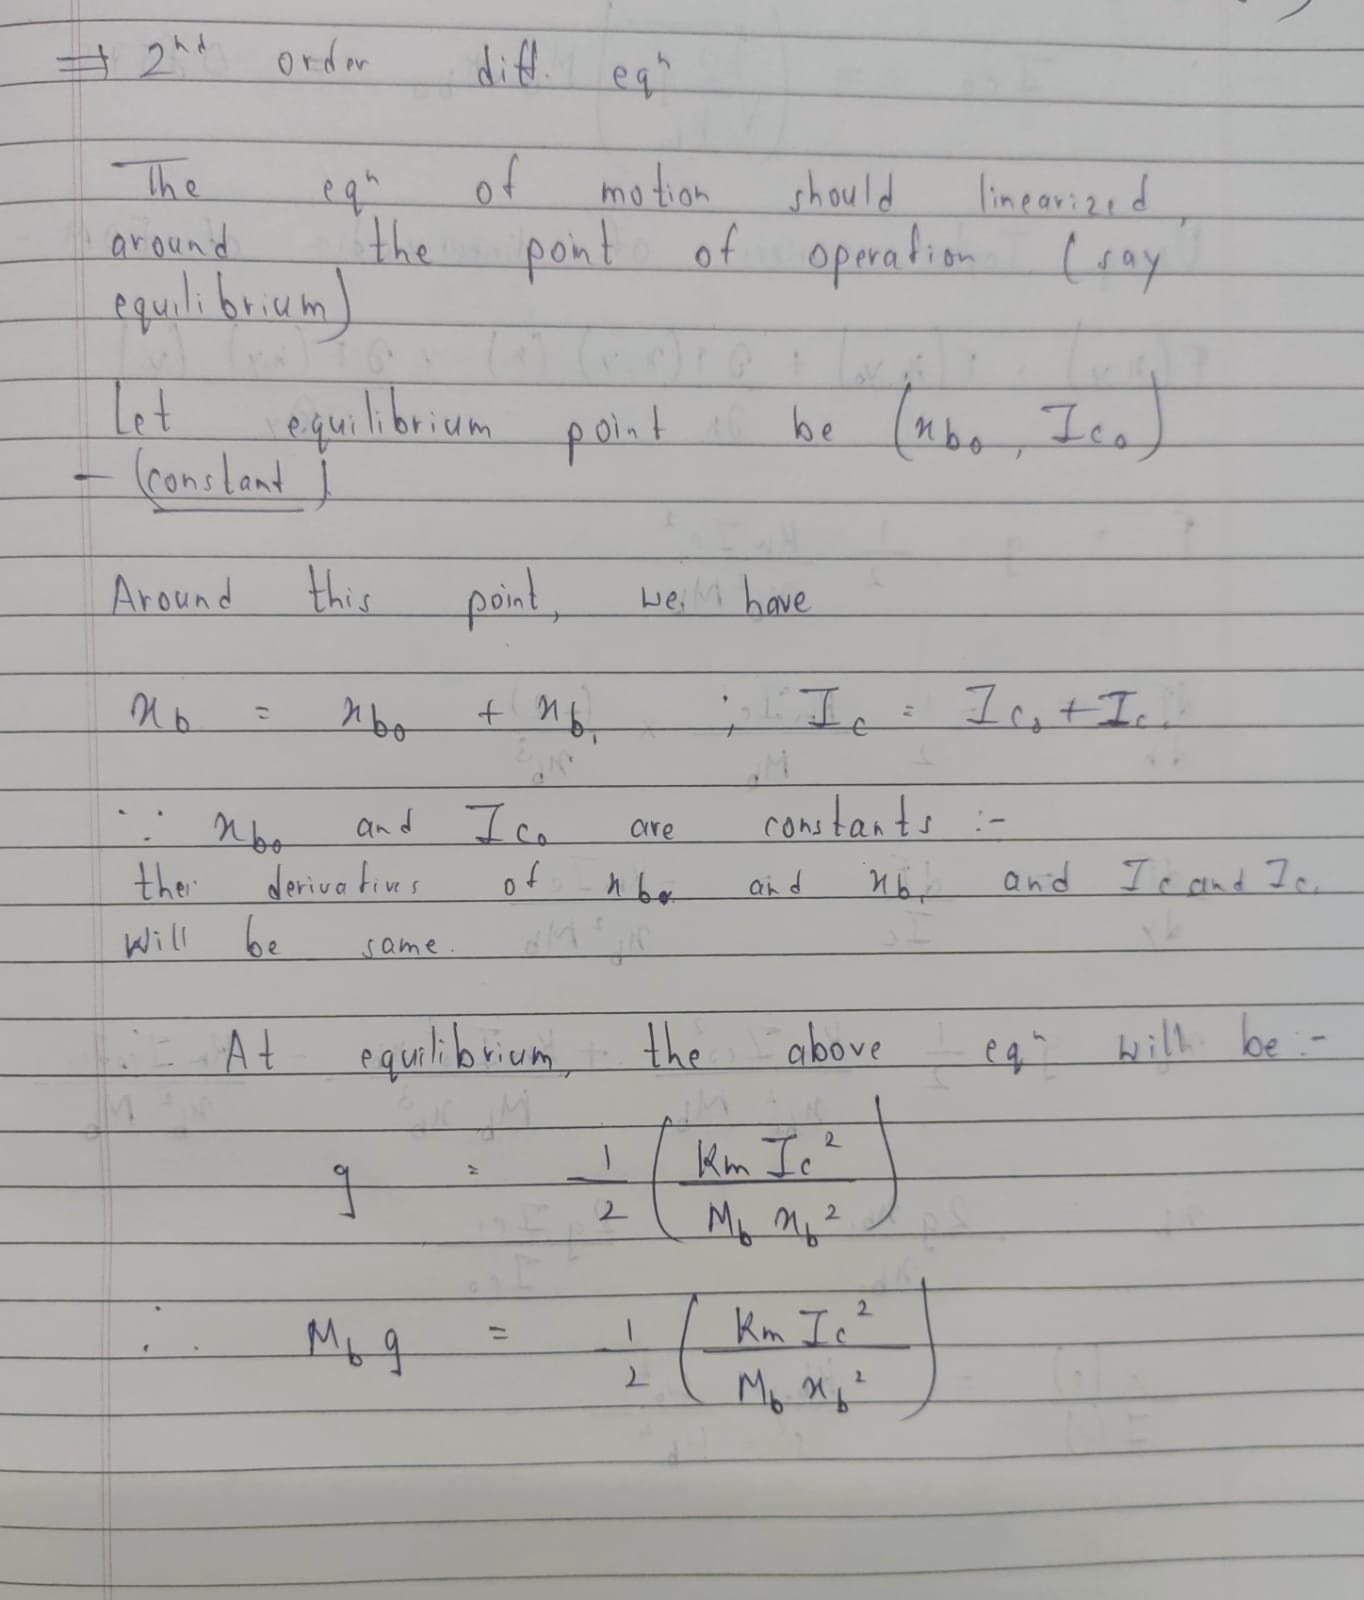 ⇒ 2nd order diff. eqn
The eqn of motion should linearized
around the point of operation (say
equilibrium)
Let equilibrium point be (xb0, Ic0)
- (constant)
Around this point, we have
xb = xb0 + xb1 ; Ic = Ic0 + Ic1
∵ xb0 and Ic0 are constants :-
the derivatives of xb and xb1 and Ic and Ic1
will be same.
∴ At equilibrium, the above eqn will be :-
g = 1/2 (Km Ic² / Mb xb²)
∴ Mb g = 1/2 (Km Ic² / Mb xb²)